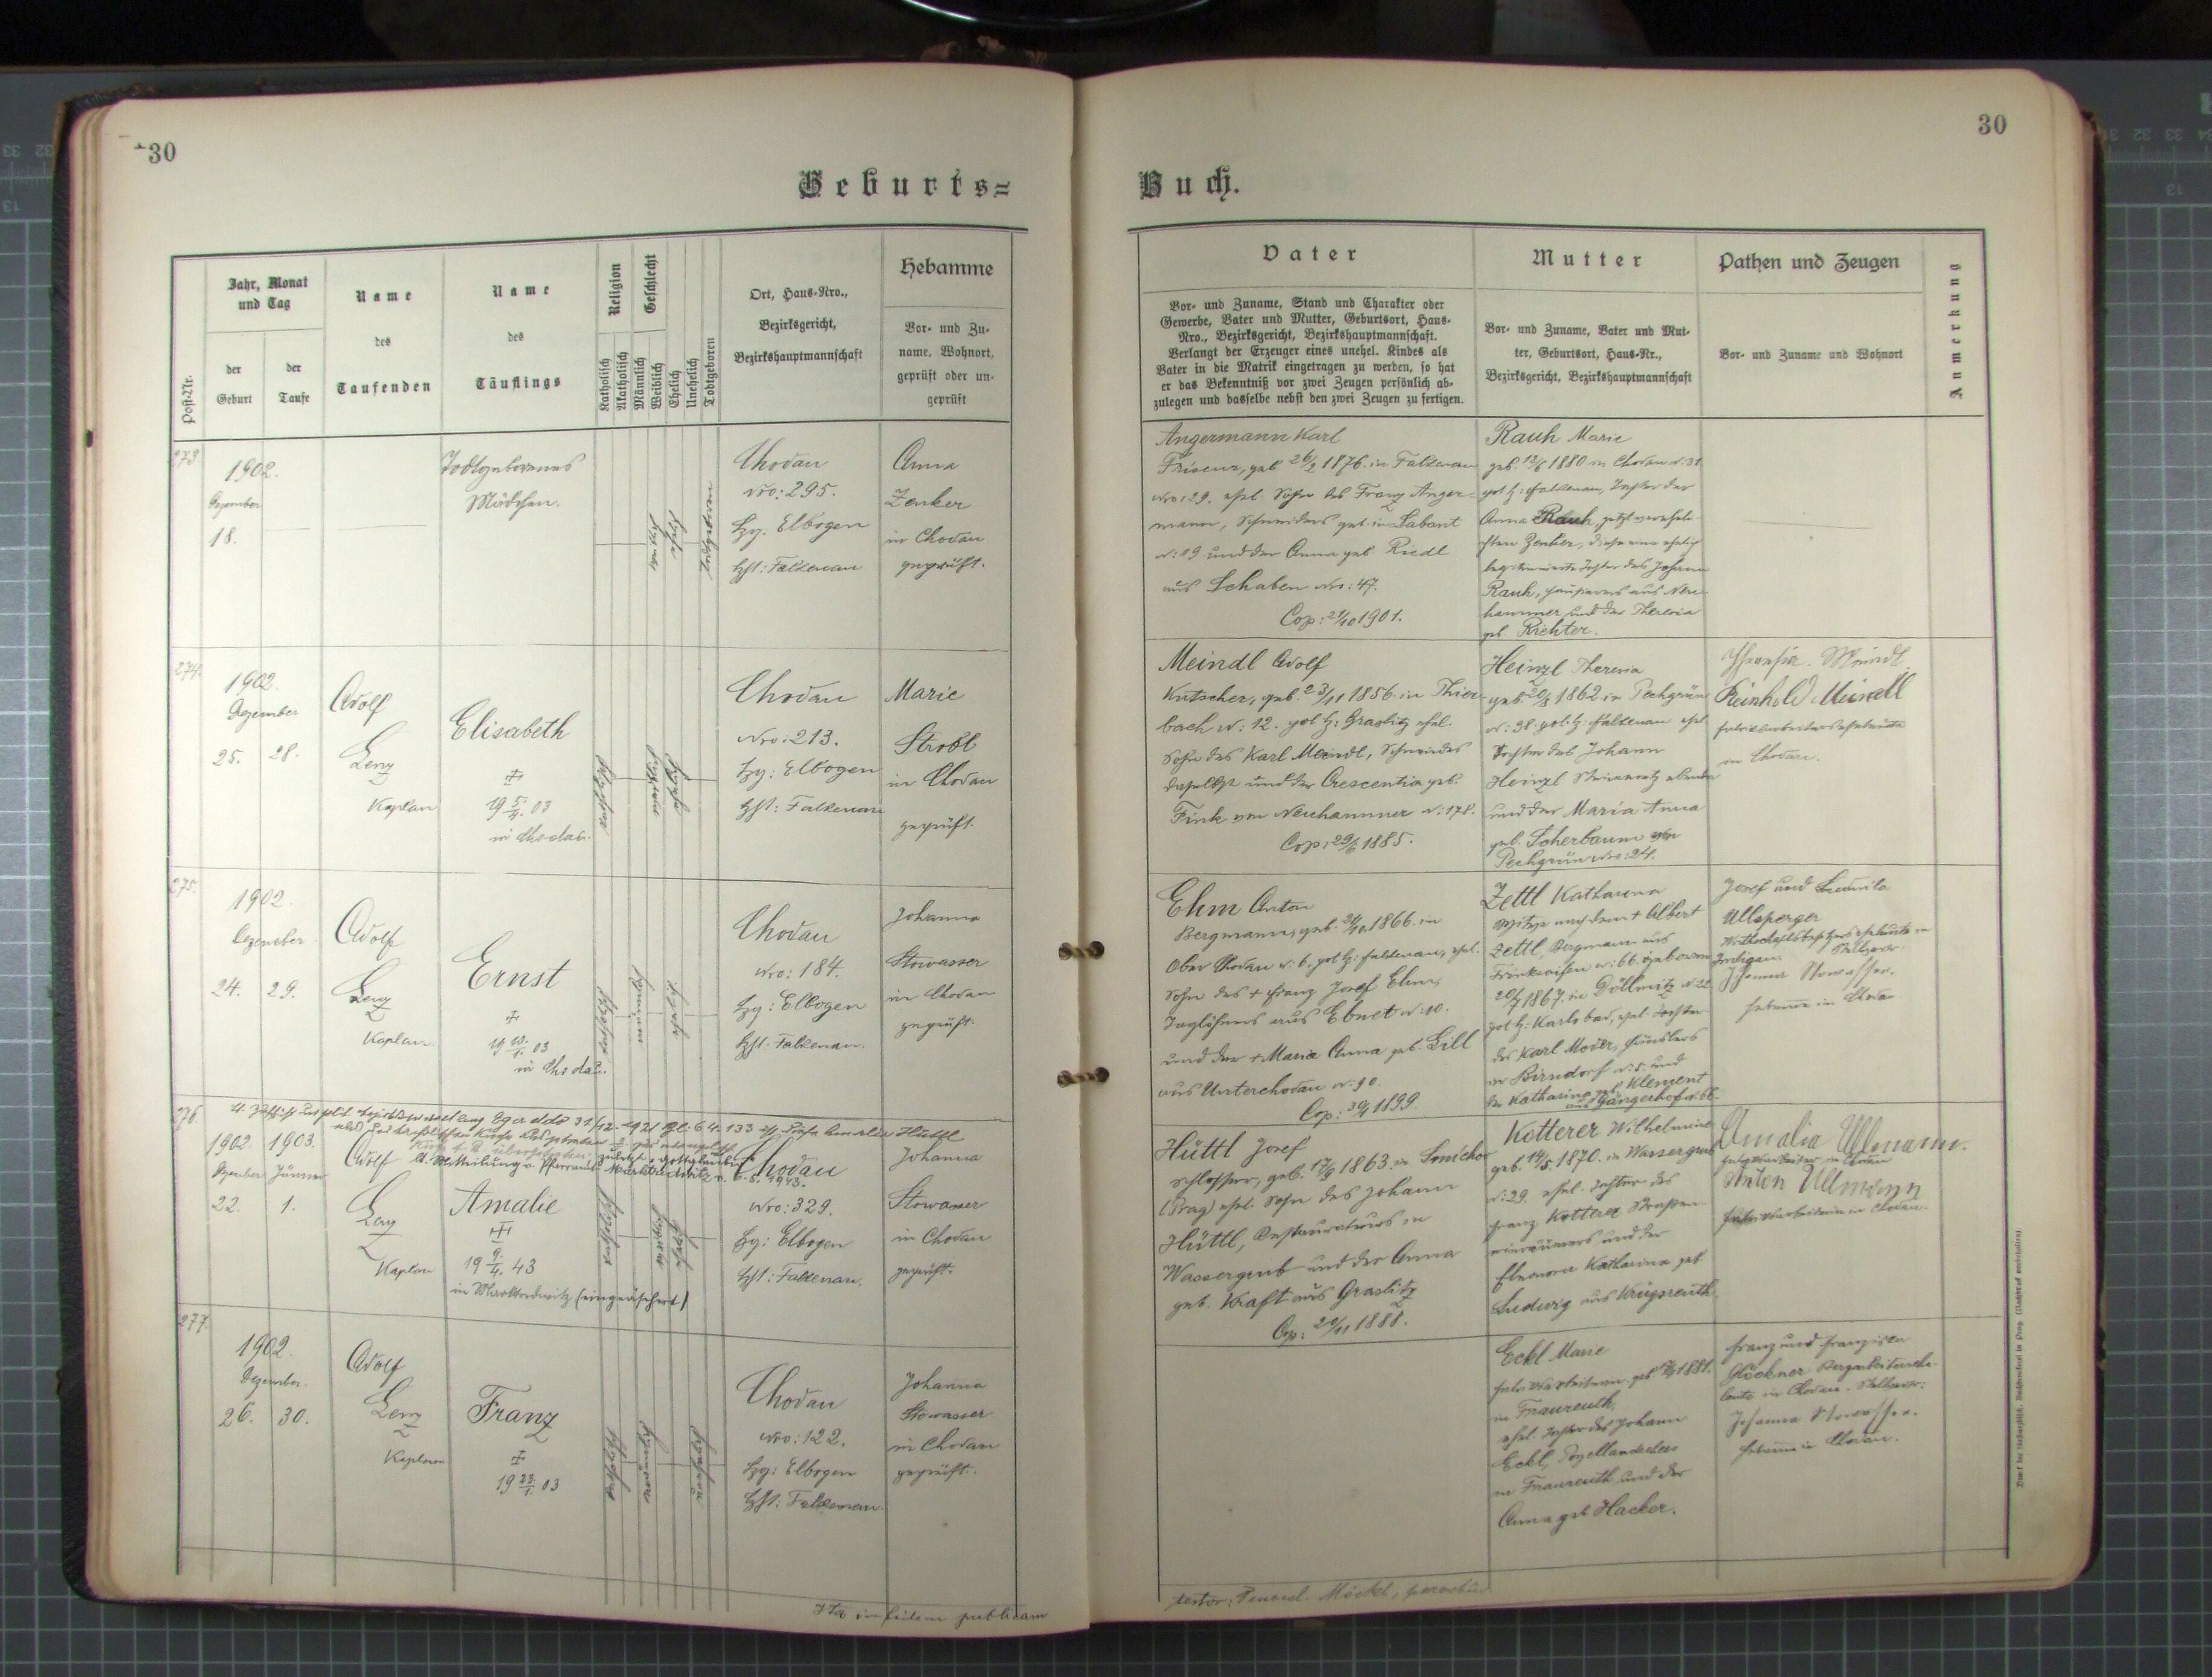 30
30
Geburts=
Buch.
Post-Nr.
Jahr, Monat
und Tag
der
Geburt
der
Taufe
Name
des
Taufenden
Name
des
Täuflings
Religion
Katholisch
Akatholisch
Geschlecht
Männlich
Weiblich
Ehelich
Unehelich
Todtgeboren
Ort, Haus-Nro.,
Bezirksgericht,
Bezirkshauptmannschaft
Hebamme
Vor- und Zu-
name, Wohnort,
geprüft oder un-
geprüft
Vater
Vor- und Zuname, Stand und Charakter oder
Gewerbe, Vater und Mutter, Geburtsort, Haus-
Nro., Bezirksgericht, Bezirkshauptmannschaft.
Verlangt der Erzeuger eines unehel. Kindes als
Vater in die Matrik eingetragen zu werden, so hat
er das Bekenntniß vor zwei Zeugen persönlich ab-
zulegen und dasselbe nebst den zwei Zeugen zu fertigen.
Mutter
Vor- und Zuname, Vater und Mut-
ter, Geburtsort, Haus-Nr.,
Bezirksgericht, Bezirkshauptmannschaft
Pathen und Zeugen
Vor- und Zuname und Wohnort
Anmerkung
273.
1902.
Dezember
18.
Todtgeborenes
Mädchen.
weiblich
ehelich
todtgeboren
Chodau
Nro: 295.
Bzg: Elbogen
Bzht: Falkenau
Anna
Zenker
in Chodau
geprüft.
Angermann Karl
Friseur, geb. 26/2 1876. in Falkenau
Nro: 29. ehel. Sohn des Franz Anger-
mann, Schneiders geb. in Sabant
N: 19 und der Anna geb. Riedl
aus Schaben Nro: 47.
Cop: 21/10 1901.
Rauh Marie
geb. 12/6 1880 in Chodau N: 31
pol. Bz: Falkenau, Tochter der
Anna Rauh, jetzt verehel-
chten Zenker, diese eine ehelich
legitimierte Tochter des Johann
Rauh, aus Neu-
hammer und der Theresia
geb. Richter.
274.
1902.
Dezember
25. 28.
Adolf
Lenz
Kaplan
Elisabeth
19 5/4. 03
in Chodau.
katholisch
weiblich
ehelich
Chodau
Nro: 213.
Bzg: Elbogen
Bzht: Falkenau
Marie
Strobl
in Chodau
geprüft.
Meindl Adolf
Kutscher, geb. 23/11 1856 in Thier-
bach N: 12. pol. Bz: Graslitz ehel.
Sohn des Karl Meindl, Schneiders
daselbst und der Crescentia geb.
Fink von Neuhammer N: 178.
Cop: 29/6 1885.
Heinzl Theresia
geb. 20/8 1862 in Pechgrün
N: 38. pol. Bz: Falkenau ehel.
Tochter des Johann
Heinzl Steinmetz
und der Maria Anna
geb. Loherbaum von
Pechgrün Nro: 24.
Theresia Meindl
Reinhold Meindl
Fabriksarbeiterseheleute
in Chodau.
275.
1902.
Dezember
24. 29.
Adolf
Lenz
Kaplan
Ernst
19 13/1. 03
in Chodau.
katholisch
männlich
ehelich
Chodau
Nro: 184.
Bzg: Elbogen
Bzht: Falkenau.
Johanna
Stowasser
in Chodau
geprüft.
Ehm Anton
Bergmann, geb. 24/10 1866. in
Ober Chodau N: 6. pol. Bz: Falkenau, ehel.
Sohn des + Franz Josef Ehm,
Taglöhners aus Ebnet N: 10.
und der + Maria Anna geb. Lill
aus Unterchodau N: 90.
Cop: 30/1 1899.
Zettl Katharina
Witwe nach dem + Albert
Zettl, Bergmann aus
N: 66. geboren
20/7 1867. in Döllnitz N: 22
pol. Bz: Karlsbad, ehel. Tochter
des Karl Moder, Häuslers
in Birndorf N: 5. und
der Katharina geb. Klement
aus Gängerhof N: 66.
Josef und Ludmila
Ullsperger
Wirthschaftsbesitzerseheleute in
Zwodigau. Stellvertr.
Johanna Stowasser.
Hebamme in Chodau
276.
lt. Zuschrift der polit. Bezirksverwaltung Eger ddto 31/12. 1921 Zl: 64.133 ist diese Amalie Hüttl
aus der katholischen Kirche ausgetreten
lt. Mitteilung v. Pfarramte Marktredwitz v. 6. 5. 1943.
1902. 1903.
Dezember Jänner
22. 1.
Adolf
Lenz
Kaplan
Amalie
19 9/4. 43
in Marktredwitz (eingeäschert)
katholisch
weiblich
ehelich
Chodau
Nro: 329.
Bzg: Elbogen
Bzht: Falkenau.
Johanna
Stowasser
in Chodau
geprüft.
Hüttl Josef
Schlosser, geb. 17/9 1863. in Smichov
(Prag) ehel. Sohn des Johann
Hüttl, Restaurateurs in
Wassergrub und der Anna
geb. Kraft aus Graslitz
Cop: 20/11 1888.
Kotterer Wilhelmine
geb. 14/5. 1870. in Wassergrub
N: 29. ehel. Tochter des
Franz Kotterer Straßen-
einräumers und der
Eleonora Katharina geb.
Ludwig aus Krugsreuth.
Amalia Ullmann.
in Chodau
Anton Ullmann
in Chodau.
277.
1902.
Dezember.
26. 30.
Adolf
Lenz
Kaplan
Franz
19 23/1. 03
katholisch
männlich
unehelich
Chodau
Nro: 122.
Bzg: Elbogen
Bzht: Falkenau.
Johanna
Stowasser
in Chodau
geprüft.
Eckl Marie
Fabriksarbeiterin geb. 1881.
in Fraureuth,
ehel. Tochter des Johann
Eckl, Porzellandrehers
in Fraureuth und der
Anna geb. Hacker.
Franz und Franziska
Glöckner Bergarbeiterehe-
leute in Chodau. Stellvertr:
Johanna Stowasser.
Hebamme in Chodau.
Ita in fidem publicam
testor: Möckl, parochus